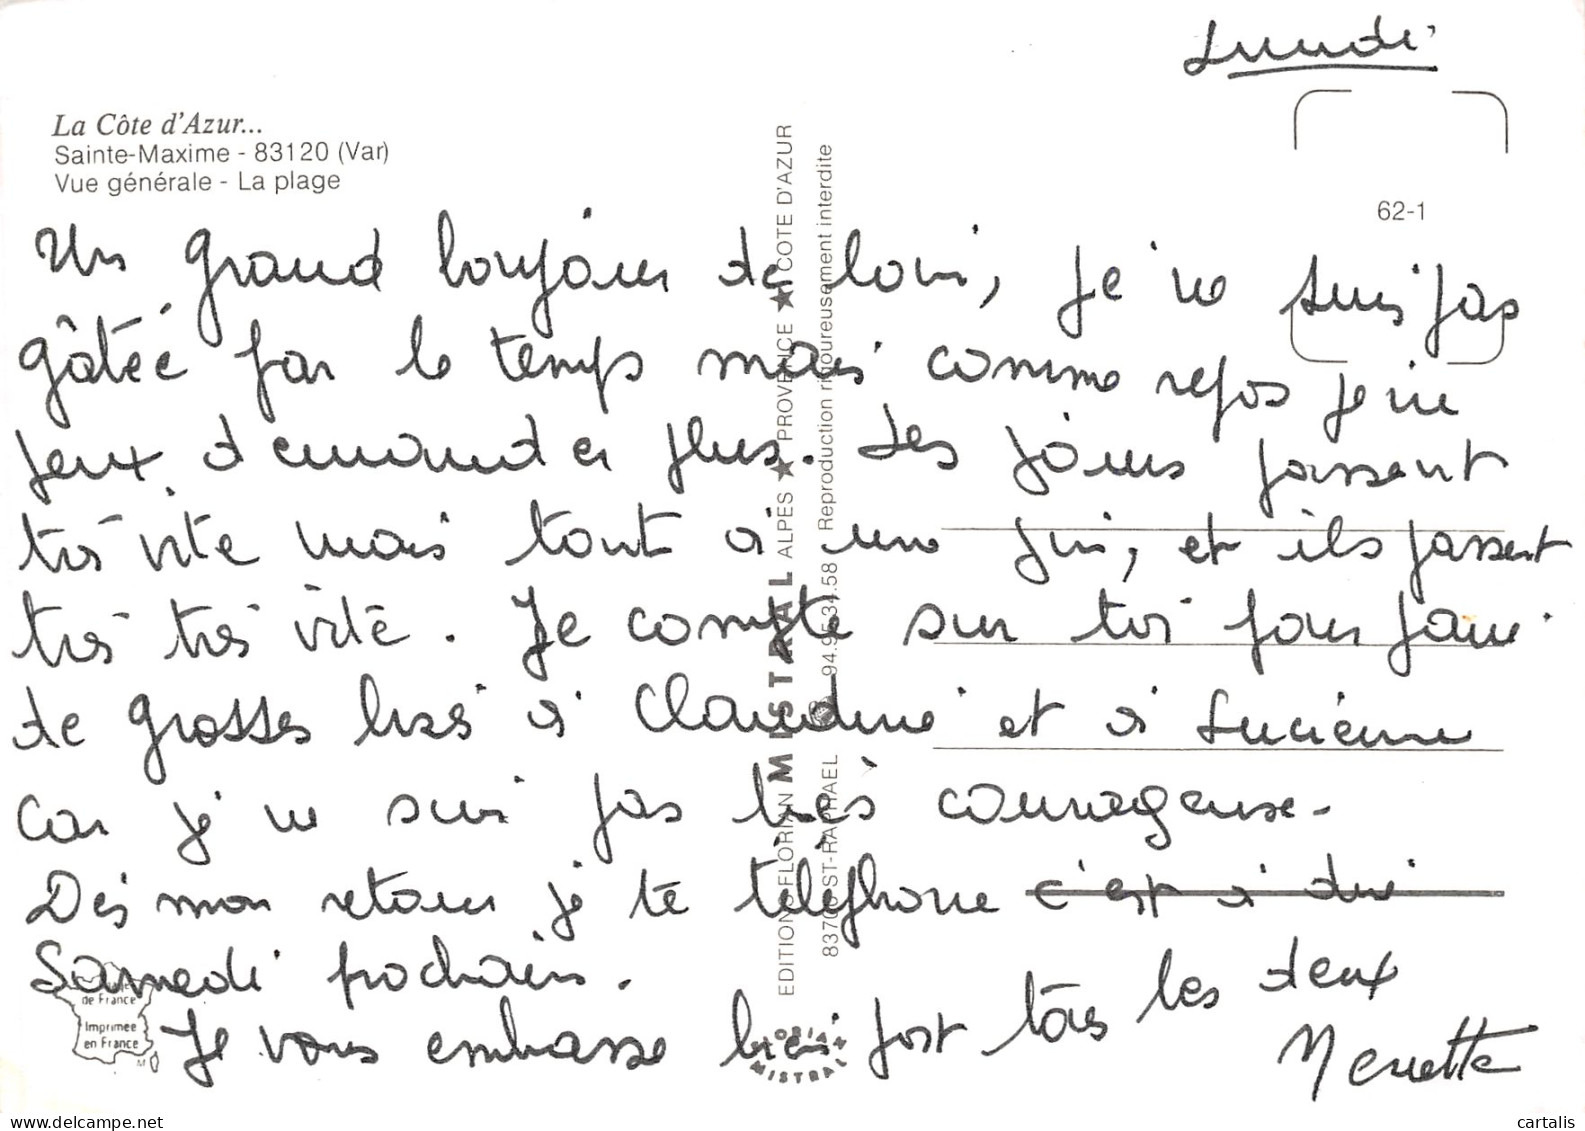 Lundi
La Côte d'Azur...
Sainte-Maxime - 83120 (Var)
Vue générale - La plage
62-1
Un grand bonjour de loin, je ne suis pas
gâtée par le temps mais comme repos je ne
peux demander plus. Les jours passent
très vite mais tout a une fin, et ils passent
très très vite. Je compte sur toi pour faire
de grosses bises à Claudine et à Lucienne
car je ne suis pas très courageuse.
Dès mon retour je te téléphone c'est à dire
Samedi prochain.
Je vous embrasse bien fort tous les deux
EDITIONS FLORIAN MISTRAL ALPES ★ PROVENCE ★ COTE D'AZUR
ST-RAPHAEL Reproduction rigoureusement interdite
de France
Imprimée
en France
MISTRAL
delcampe.net
cartalis